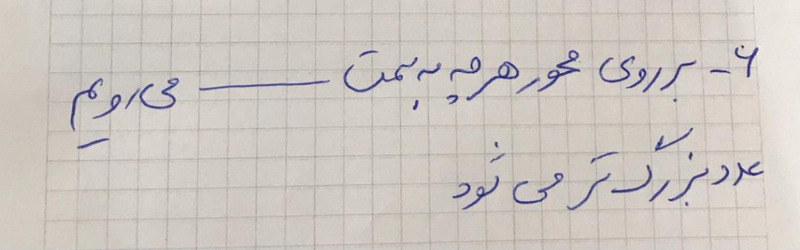 ۶- بر روی محور هر چه به سمت ــــــــ می رویم
عدد بزرگ تر می شود